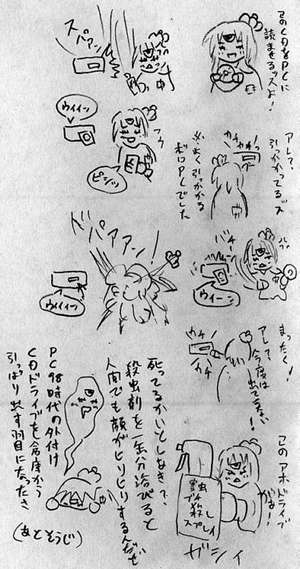 このCDをPCに
読ませるッスよ!
スパァン
アレ?、
引っかかってるッス
ガチ
ガチ
よく引っかかる
ボロPCでした
ウィィン
フゥ
ピシッ
ガチ
ウィーン
ドパァアン!
ウィーン
まったく!
アレ?今度は
出てこない!
ガチ
ガチ
このアホドライブ
がぁ!
害虫
ブチ殺し
スプレイ
ガシィ
死ってるかいとしあき?
殺虫剤を一缶分浴びると
人間でも顔がヒリヒリするんだぜ
PC98時代の外付け
CDドライブを
引っぱり出す羽目になったさ
(あとそうじ)